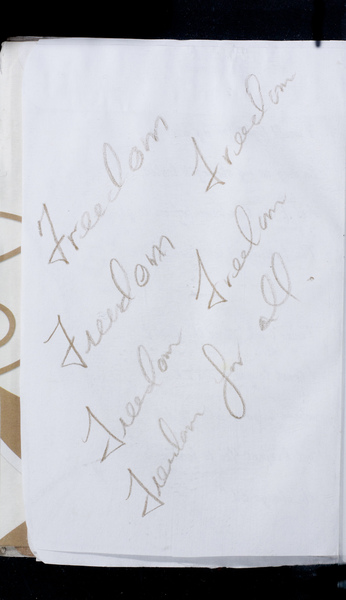 Freedom
Freedom
Freedom
Freedom
Freedom
Freedom for all.